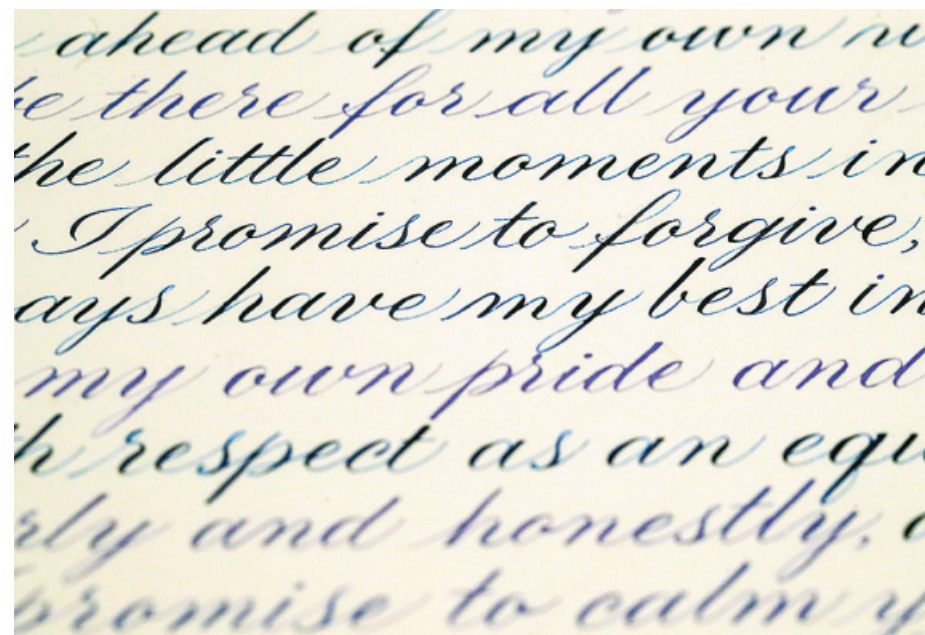 ahead of my own
there for all your
the little moments in
I promise to forgive,
have my best in
my own pride and
respect as an
and honestly.
promise to calm